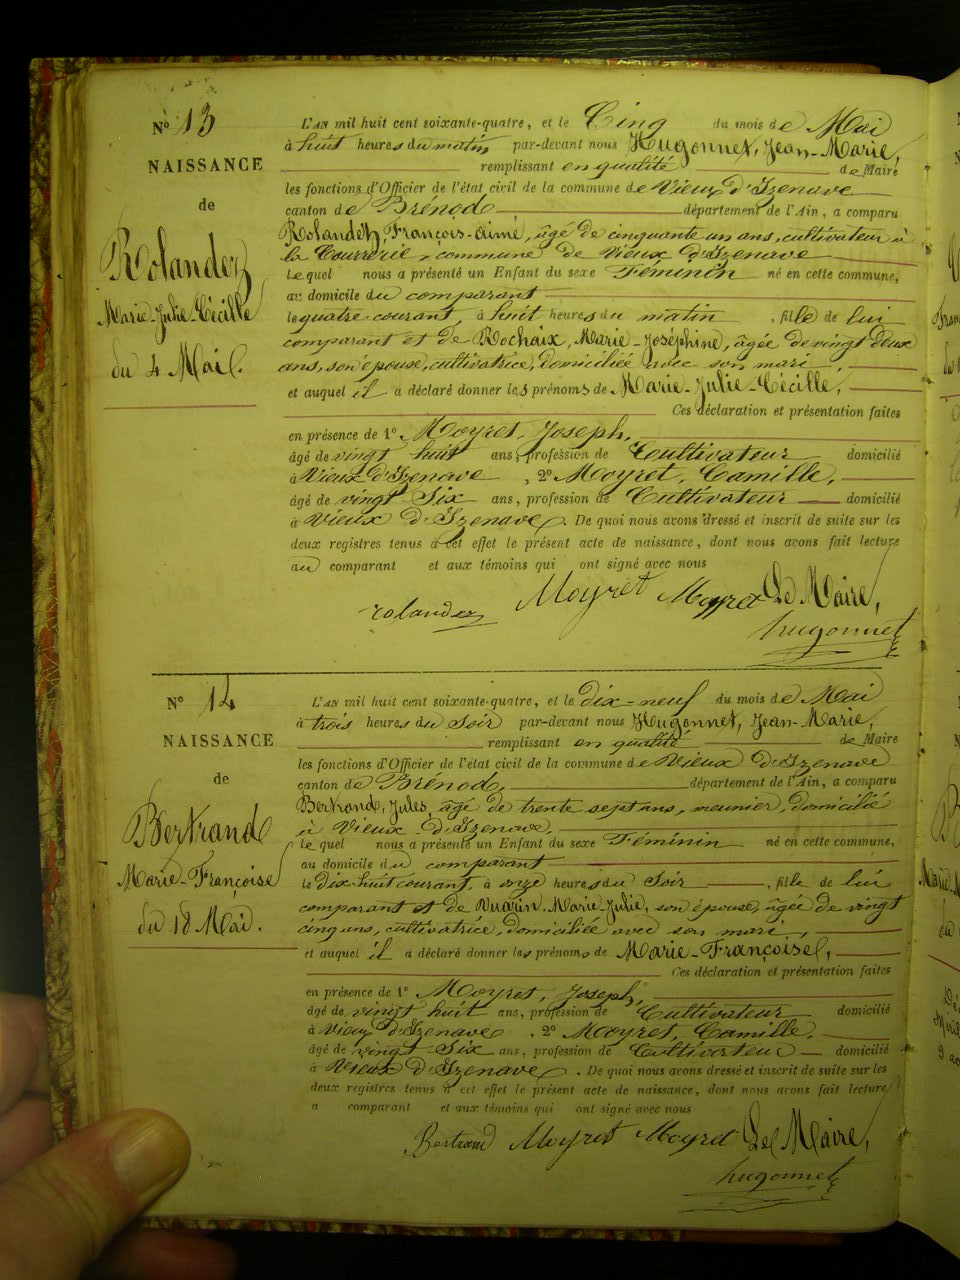 Nº 13
NAISSANCE
de
Rolandez
Marie-Julie-Cécille
du 4 Mai.
L'AN mil huit cent soixante-quatre, et le Cinq du mois de Mai
à huit heures du matin, par-devant nous Hugonnet, Jean-Marie,
remplissant en qualité de Maire
les fonctions d'Officier de l'état civil de la commune de Vieux d'Izenave
canton de Brénod département de l'Ain, a comparu
Rolandez, François-Aimé, âgé de cinquante un ans, cultivateur à
la Courrerie, commune de Vieux d'Izenave
Lequel nous a présenté un Enfant du sexe Féminin né en cette commune,
au domicile du comparant
le quatre courant, à huit heures du matin, fille de lui
comparant et de Rochaix, Marie-Joséphine, âgée de vingt deux
ans, son épouse, cultivatrice, domiciliée avec son mari,
et auquel il a déclaré donner les prénoms de Marie-Julie-Cécille,
Ces déclaration et présentation faites
en présence de 1º Moyret, Joseph,
âgé de vingt huit ans, profession de Cultivateur domicilié
à Vieux d'Izenave, 2º Moyret, Camille,
âgé de vingt Six ans, profession de Cultivateur domicilié
à Vieux d'Izenave. De quoi nous avons dressé et inscrit de suite sur les
deux registres tenus à cet effet le présent acte de naissance, dont nous avons fait lecture
au comparant et aux témoins qui ont signé avec nous
rolandez Moyret Moyret Le Maire,
hugonnet
Nº 14
NAISSANCE
de
Bertrand
Marie-Françoise
du 18 Mai.
L'AN mil huit cent soixante-quatre, et le dix-neuf du mois de Mai
à trois heures du Soir par-devant nous Hugonnet, Jean-Marie,
remplissant en qualité de Maire
les fonctions d'Officier de l'état civil de la commune de Vieux d'Izenave
canton de Brénod, département de l'Ain, a comparu
Bertrand, Jules, âgé de trente sept ans, meunier, domicilié
à Vieux-d'Izenave,
Lequel nous a présenté un Enfant du sexe Féminin né en cette commune,
au domicile du comparant
le dix-huit courant, à onze heures du Soir, fille de lui
comparant et de Quarin, Marie Julie, son épouse, âgée de vingt
cinq ans, cultivatrice, domiciliée avec son mari,
et auquel il a déclaré donner les prénoms de Marie-Françoise,
Ces déclaration et présentation faites
en présence de 1º Moyret, Joseph,
âgé de vingt huit ans, profession de Cultivateur domicilié
à Vieux d'Izenave, 2º Moyret, Camille,
âgé de vingt Six ans, profession de Cultivateur domicilié
à Vieux d'Izenave. De quoi nous avons dressé et inscrit de suite sur les
deux registres tenus à cet effet le présent acte de naissance, dont nous avons fait lecture
a comparant et aux témoins qui ont signé avec nous
Bertrand Moyret Moyret Le Maire,
hugonnet